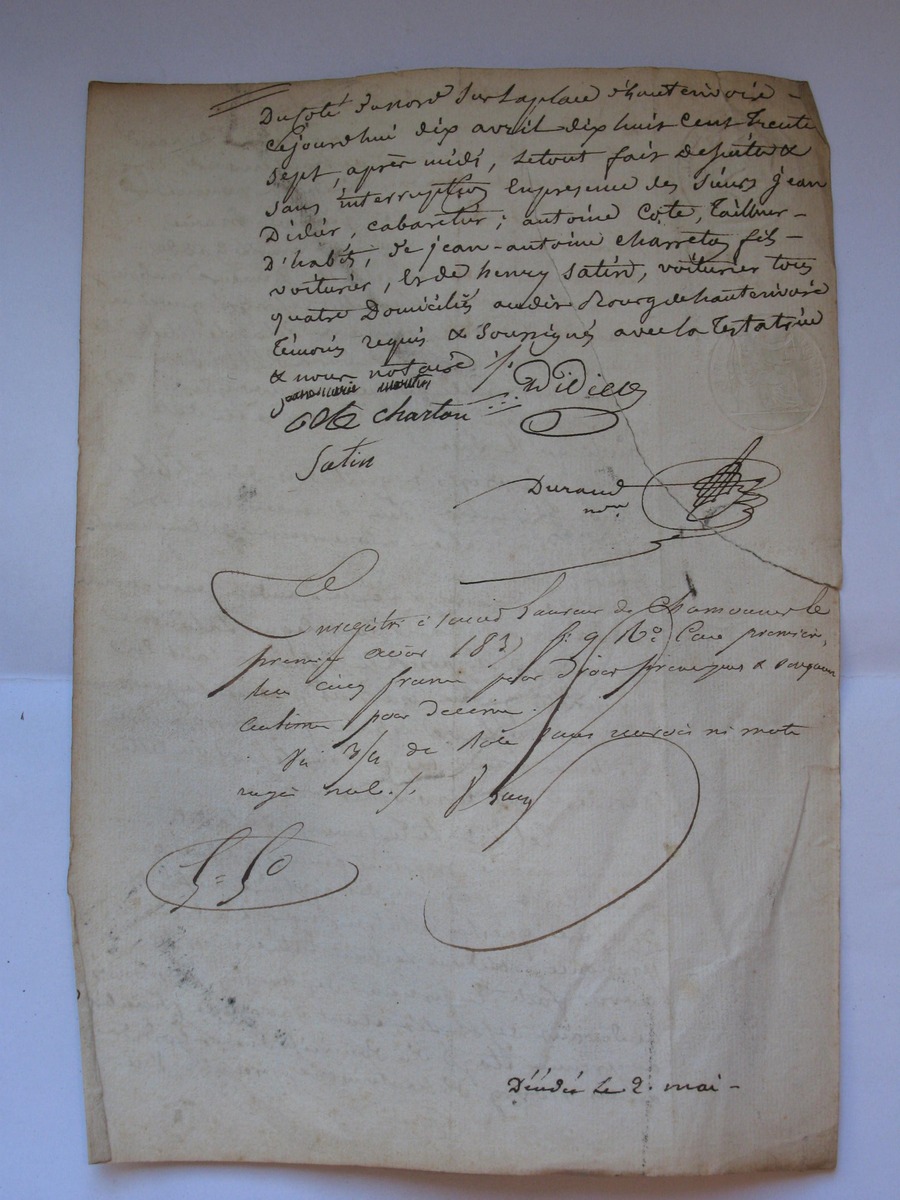 Du Coté du nord Sur la place d'hauterivoire -
Cejourdhui dix avril dix huit cent trente
sept, après midi, le tout fait de suite &
sans interruption En presence des sieurs jean
Didier, cabaretier; antoine Cote, Tailleur -
D'habits, de jean-antoine Charreton fils -
voiturier, Et de henry Satin, voiturier tous
quatre Domiciliés audit Bourg de hauterivoire
Témoins requis & Soussignés avec la Testatrice
& nous notaire
jeanne marie martin Didier
cote charton
Satin
Durand
nre
Enregistré à Saint Laurent de Chamousset le
premier 1837 fo 9 Ro Case première,
cinq francs pour Droit principal &
centimes pour decime.
du Rôle sans renvois ni mots
rayé nul ./.
5=50
Le 2. mai -